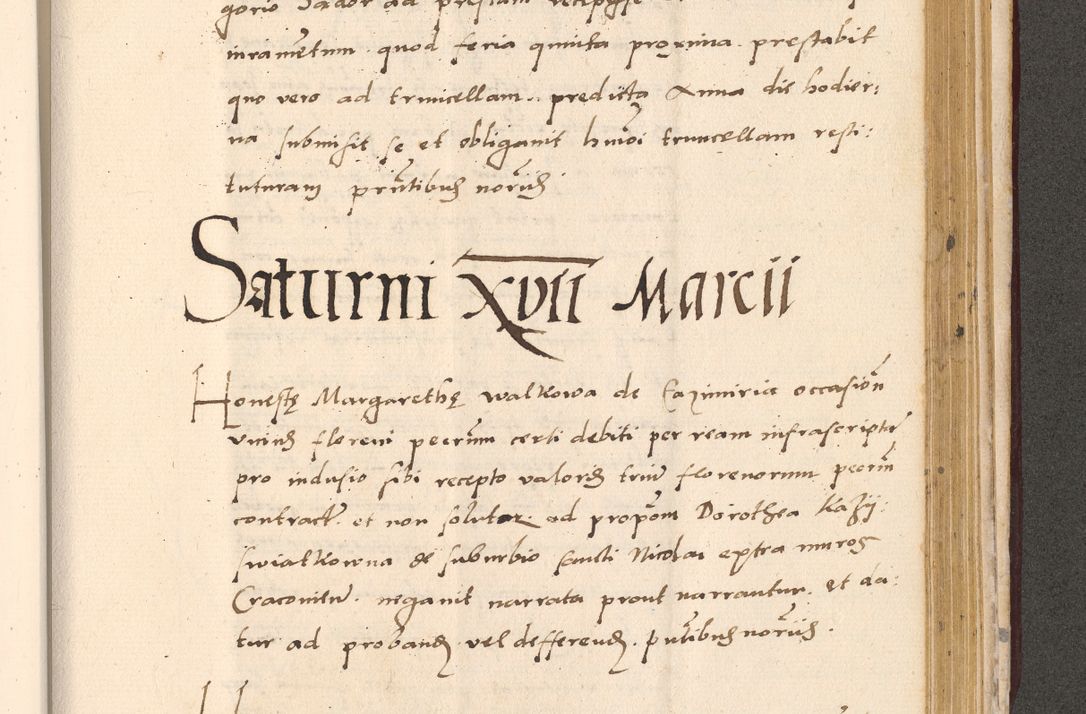 gorio Sador ad prestam recepisse
iurametum quod feria quinta proxima prestabit
quo vero ad truncellam predicta Anna die hodier:
na submisit se et obliganit hmoi truncellam resti:
tuturam pritibus noriis
Saturni XVII Marcii
Honeste Margarethe walkowa de Cazimiria occasion
vnius floreni pecrum certi debiti per ream infrascriptr
pro indusio sibi recepto valoris triu florenorum pecrm
contract et non solutar ad propom Dorothea Kazij
swiatkowna de suburbio sancti Nicolai extra muros
Cracouien neganit narrata prout narrantur. Et da:
tur ad proband vel defferend. putibus noriis.